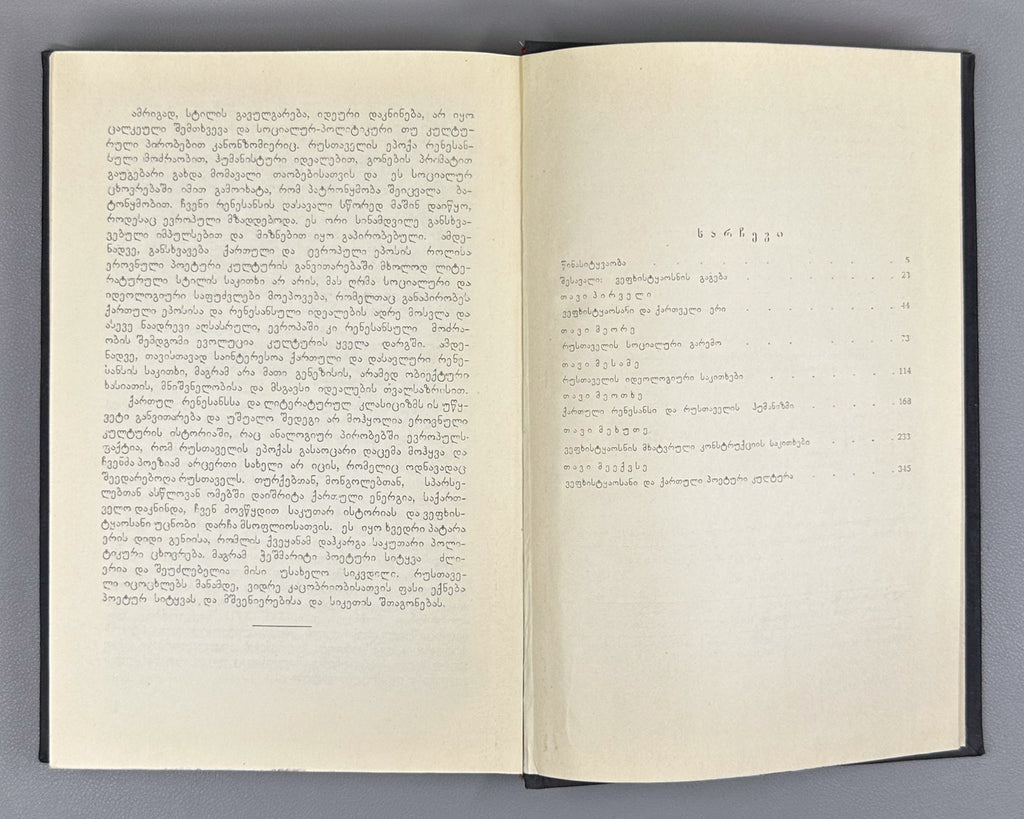 ამრიგად, სტილის გავულგარება, იდეური დაკნინება, არ იყო
ცალკეული შემთხვევა და სოციალურ-პოლიტიკური თუ კულტუ-
რული პირობებით კანონზომიერიც. რუსთაველის ეპოქა რენესან-
სული მოძრაობით, ჰუმანისტური იდეალებით, გონების პრიმატით
გაუგებარი გახდა მომავალი თაობებისათვის და ეს სოციალურ
ცხოვრებაში იმით გამოიხატა, რომ პატრონყმობა შეიცვალა ბა-
ტონყმობით. ჩვენი რენესანსის დასავალი სწორედ მაშინ დაიწყო,
როდესაც ევროპული მზადდებოდა. ეს ორი სინამდვილე განსხვა-
ვებული იმპულსებით და მიზნებით იყო გაპირობებული. ამდე-
ნადვე, განსხვავება ქართული და ევროპული ეპოსის როლისა
ეროვნული პოეტური კულტურის განვითარებაში მხოლოდ ლიტე-
რატურული სტილის საკითხი არ არის, მას ღრმა სოციალური და
იდეოლოგიური საფუძვლები მოეპოვება, რომელთაც განაპირობეს
ქართული ეპოსისა და რენესანსული იდეალების ადრე მოსვლა და
ასევე ნაადრევი აღსასრული, ევროპაში კი რენესანსული მოძრა-
ობის შემდგომი ევოლუცია კულტურის ყველა დარგში. ამდე-
ნადვე, თავისთავად საინტერესოა ქართული და დასავლური რენე-
სანსის საკითხი, მაგრამ არა მათი გენეზისის, არამედ ობიექტური
ხასიათის, მნიშვნელობისა და მსგავსი იდეალების თვალსაზრისით.
ქართულ რენესანსსა და ლიტერატურულ კლასიციზმს ის უწყ-
ვეტი განვითარება და უშუალო შედეგი არ მოჰყოლია ეროვნული
კულტურის ისტორიაში, რაც ანალოგიურ პირობებში ევროპულს-
ფაქტია, რომ რუსთაველის ეპოქას გასაოცარი დაცემა მოჰყვა და
ჩვენმა პოეზიამ არცერთი სახელი არ იცის, რომელიც ოდნავადაც
შეედარებოდა რუსთაველს. თურქებთან, მონგოლებთან, სპარსე-
ლებთან ასწლოვან ომებში დაიშრიტა ქართული ენერგია, საქართ-
ველო დაკნინდა, ჩვენ მოვწყდით საკუთარ ისტორიას და ვეფხის-
ტყაოსანი უცნობი დარჩა მსოფლიოსათვის. ეს იყო ხვედრი პატარა
ერის დიდი გენიისა, რომლის ქვეყანამ დაჰკარგა საკუთარი პოლი-
ტიკური ცხოვრება. მაგრამ ჭეშმარიტი პოეტური სიტყვა ძლი-
ერია და შეუძლებელია მისი უსახელო სიკვდილი. რუსთავე-
ლი იცოცხლებს მანამდე, ვიდრე კაცობრიობისათვის ფასი ექნება
პოეტურ სიტყვას და მშვენიერებისა და სიკეთის შთაგონებას.
სარჩევი
წინასიტყვაობა . . . . . . . . 5
შესავალი: ვეფხისტყაოსნის გაგება . . . . . . 23
თავი პირველი
ვეფხისტყაოსანი და ქართველი ერი . . . . . . 44
თავი მეორე
რუსთაველის სოციალური გარემო . . . . . . 73
თავი მესამე
რუსთაველის იდეოლოგიური საკითხები . . . . . . 114
თავი მეოთხე
ქართული რენესანსი და რუსთაველის ჰუმანიზმი . . . . 168
თავი მეხუთე
ვეფხისტყაოსნის მხატვრული კონსტრუქციის საკითხები . . . . 233
თავი მეექვსე
ვეფხისტყაოსანი და ქართული პოეტური კულტურა . . . . . 345